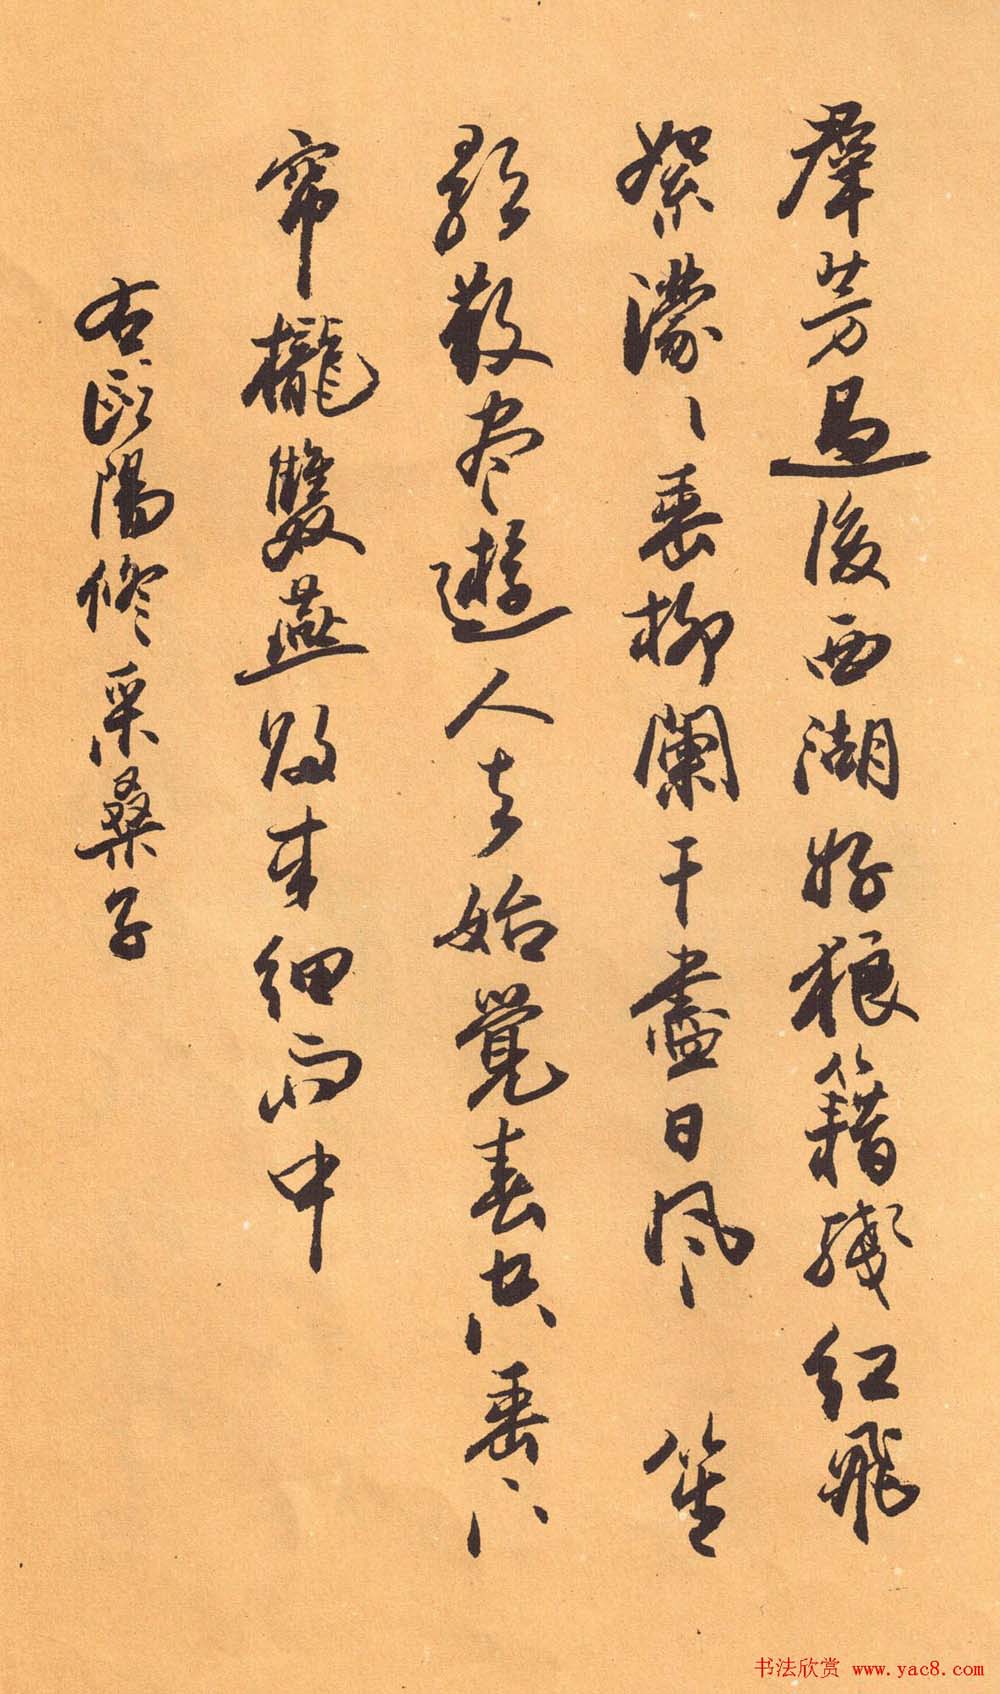 群芳過後西湖好狼籍殘紅飛
絮濛〻垂柳闌干盡日風 笙
歌散尽遊人去始覺春空垂下
帘櫳雙燕歸来细雨中
右歐陽修采桑子
书法欣赏 www.yac8.com